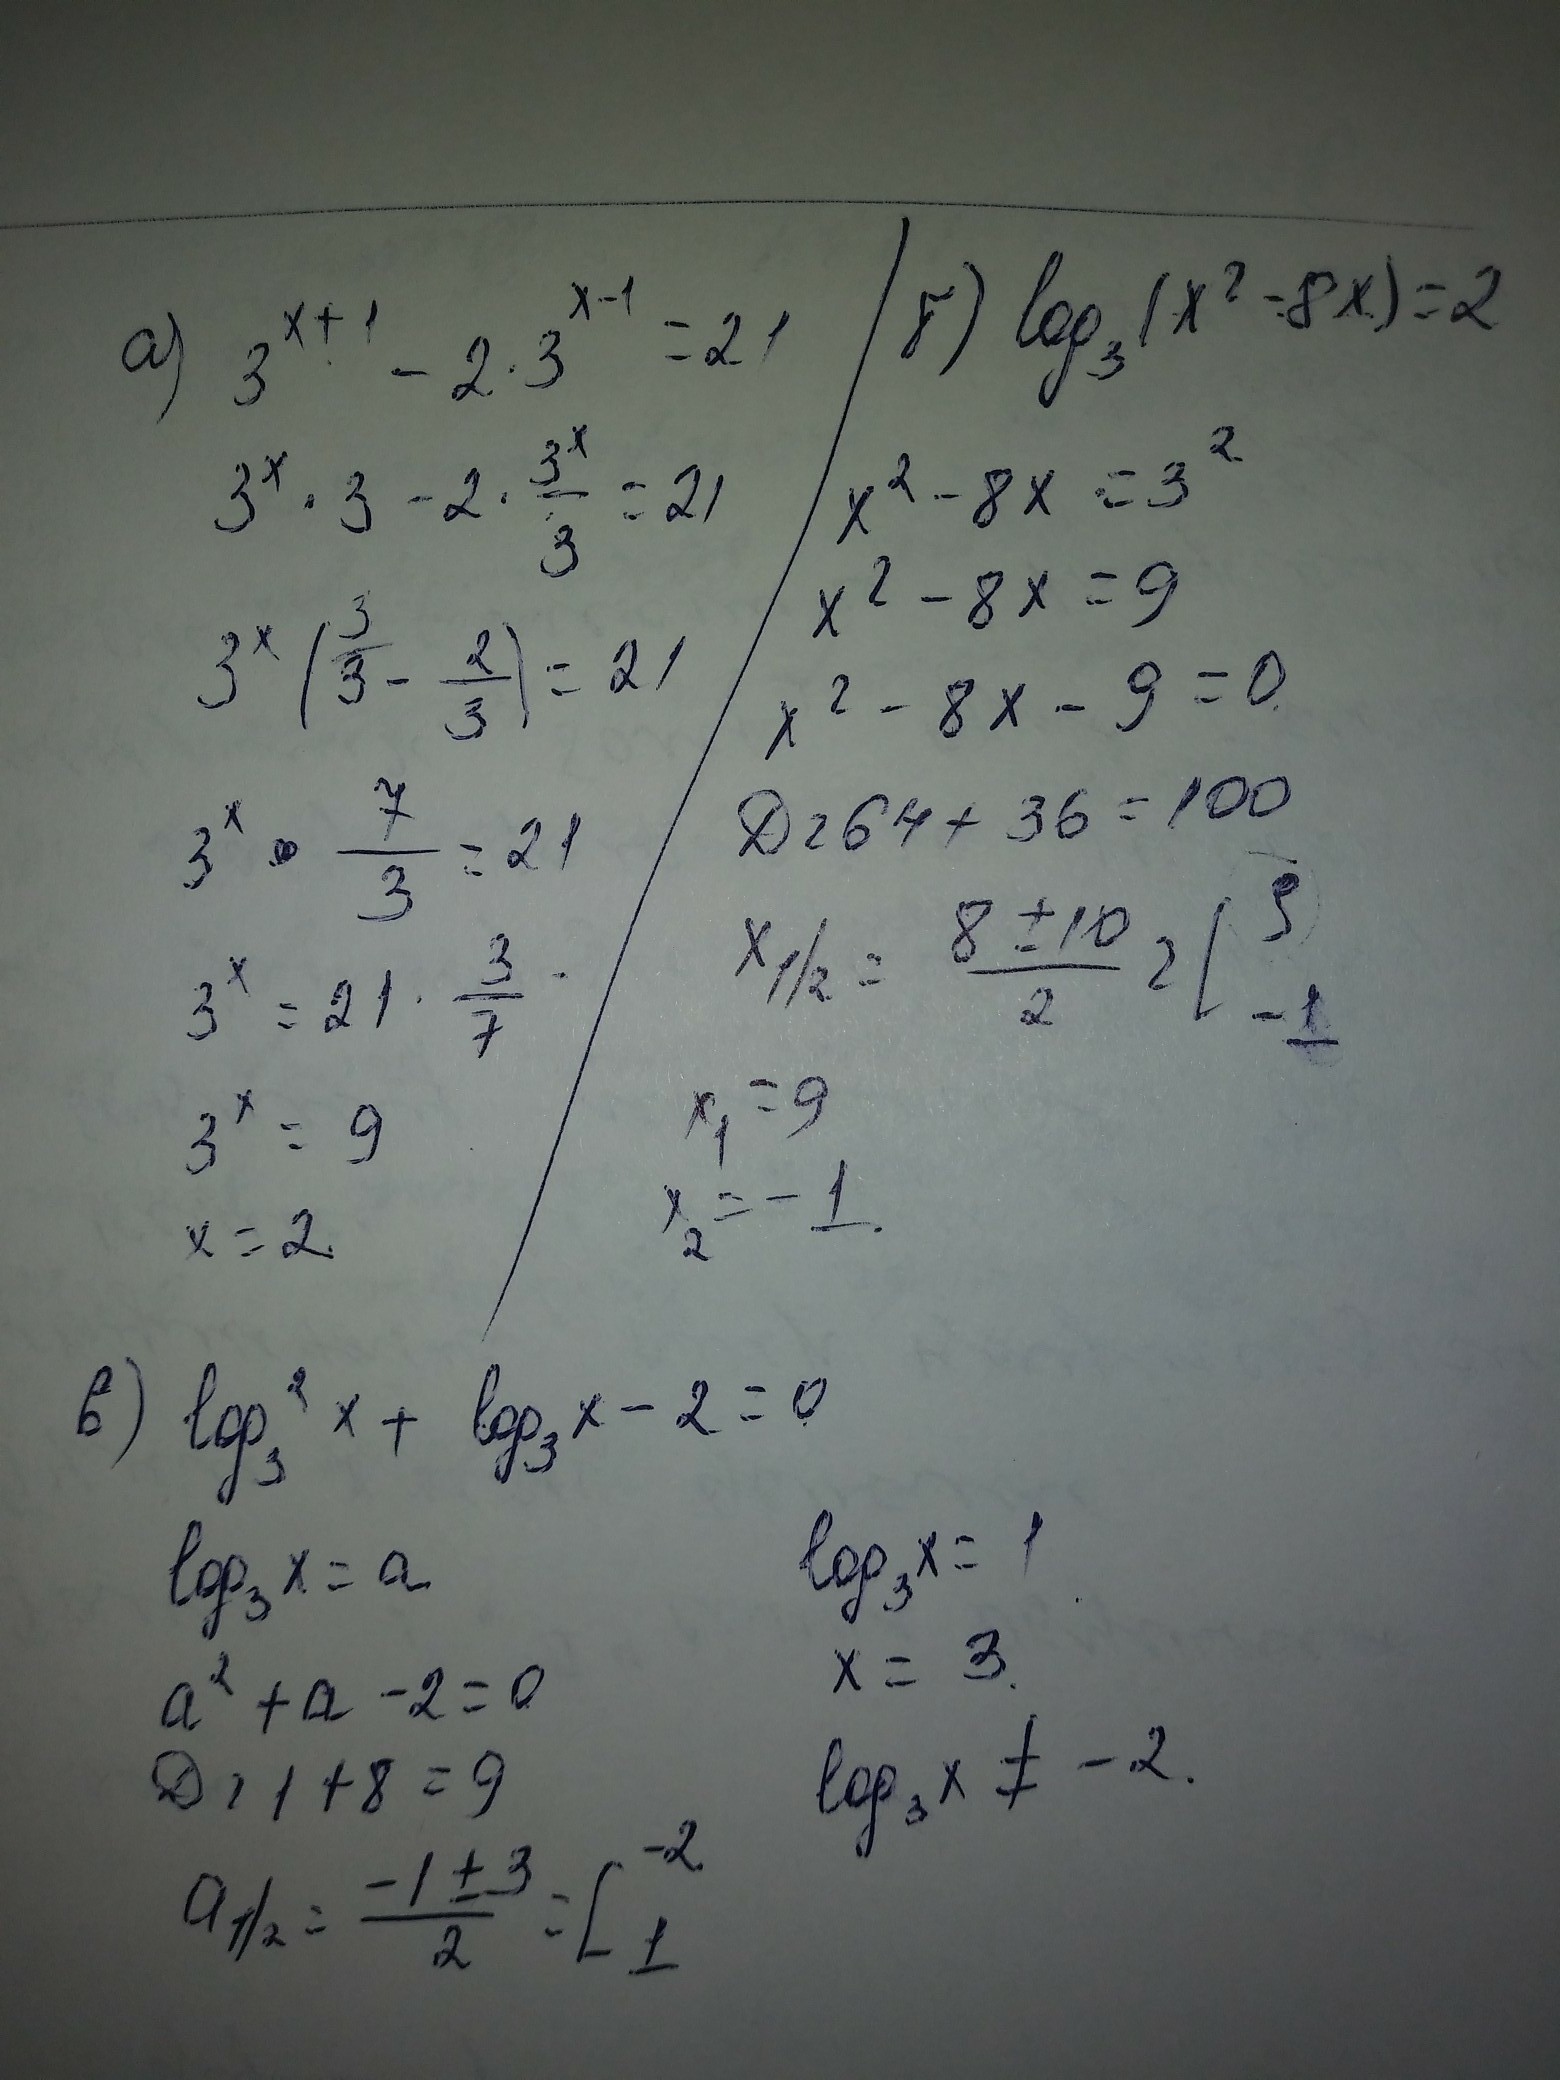 а) 3^(x+1) - 2 · 3^(x-1) = 21
3^x · 3 - 2 · 3^x/3 = 21
3^x (3/3 - 2/3) = 21
3^x · 7/3 = 21
3^x = 21 · 3/7
3^x = 9
x = 2.
б) log₃(x² - 8x) = 2
x² - 8x = 3²
x² - 8x = 9
x² - 8x - 9 = 0
D = 64 + 36 = 100
x₁/₂ = (8 ± 10)/2 = [ 9
-1
x₁ = 9
x₂ = -1.
в) log₃² x + log₃ x - 2 = 0
log₃ x = a
a² + a - 2 = 0
D = 1 + 8 = 9
a₁/₂ = (-1 ± 3)/2 = [ -2
1
log₃ x = 1
x = 3.
log₃ x ≠ -2.